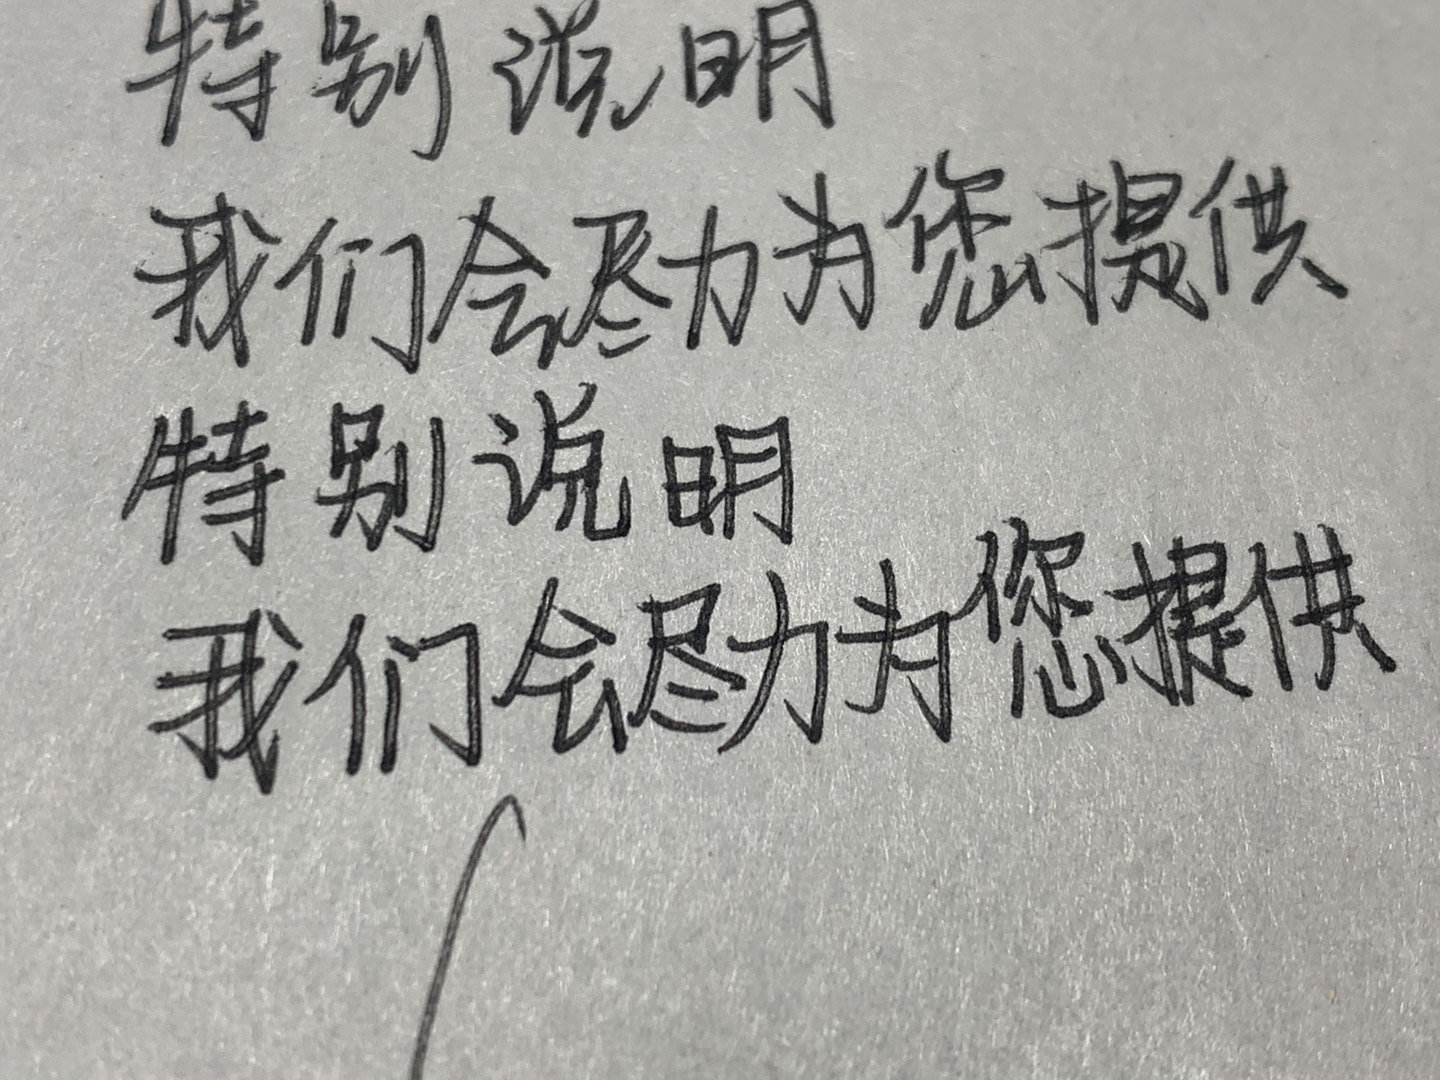 特别说明
我们会尽力为您提供
特别说明
我们会尽力为您提供